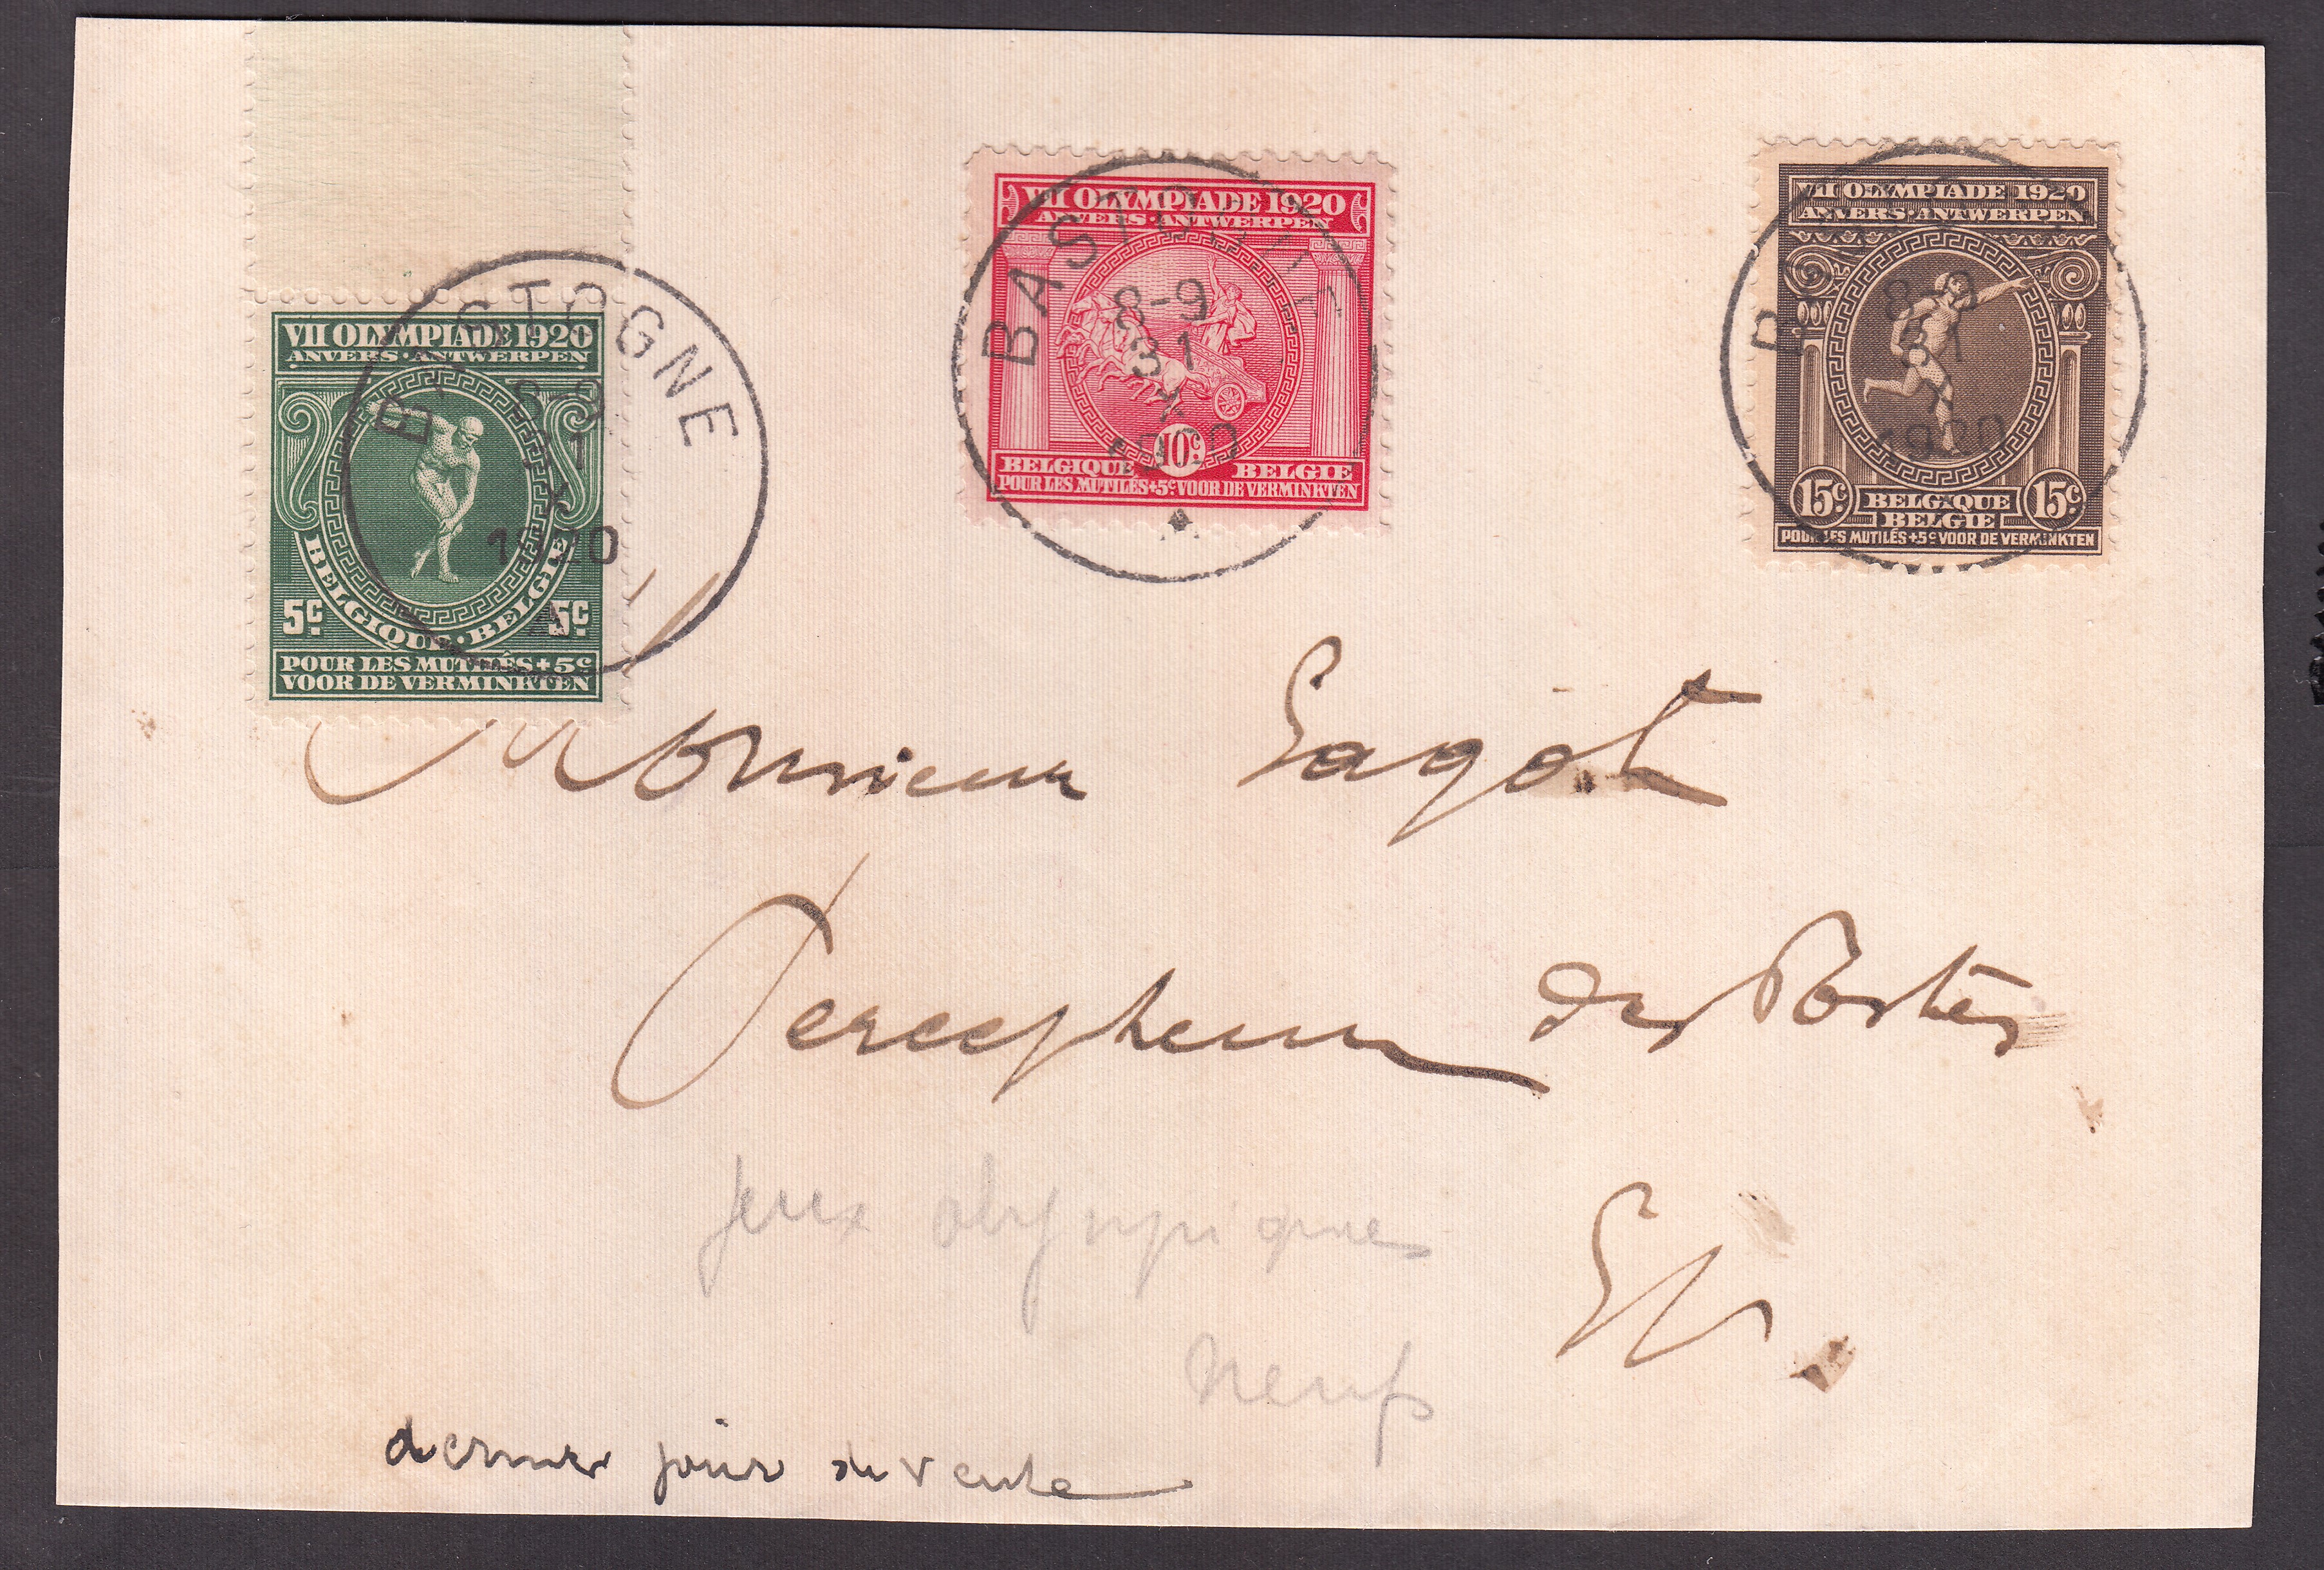 VII OLYMPIADE 1920
ANVERS · ANTWERPEN
5c 5c
BELGIQUE · BELGIE
POUR LES MUTILÉS + 5c
VOOR DE VERMINKTEN
BASTOGNE
8-9
31
X
1920
A
VII OLYMPIADE 1920
ANVERS · ANTWERPEN
10c
BELGIQUE BELGIE
POUR LES MUTILÉS +5c VOOR DE VERMINKTEN
BASTOGNE
8-9
31
X
1920
VII OLYMPIADE 1920
ANVERS · ANTWERPEN
15c BELGIQUE 15c
BELGIE
POUR LES MUTILÉS +5c VOOR DE VERMINKTEN
BASTOGNE
8-9
31
X
1920
Monsieur Gagot
Percepteur des Postes
jeux olympiques
E/V.
neufs
dernier jour de vente